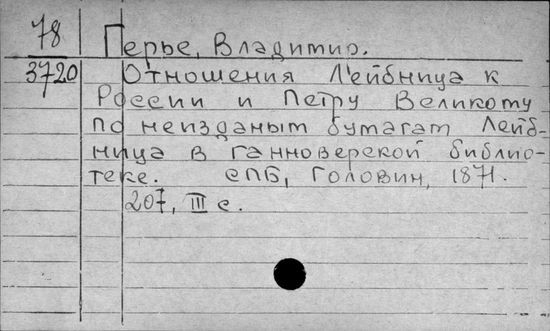 78 Герье, Владимир.
3720 Отношения Лейбница к
России и Петру Великому
по неизданым бумагам Лейб-
ница в ганноверской библио-
теке. СПБ, Головин, 1871.
207, III с.